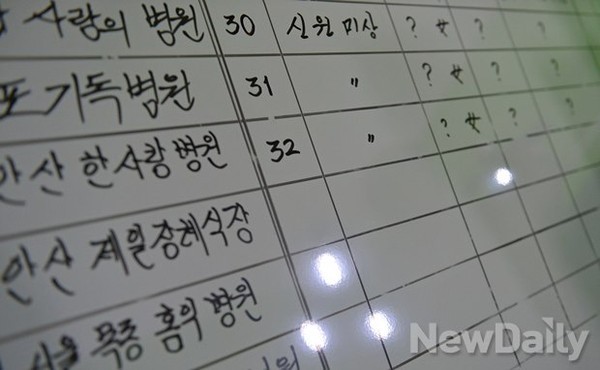 사랑의 병원 30 신원미상 ? 女 ? ?
포 기독병원 31 〃 ? 女 ? ?
안산 한사랑병원 32 〃 ? 女 ? ?
안산 제일장례식장
서울 목동 홈의 병원
NewDaily